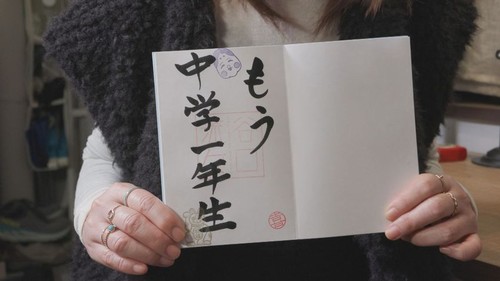 もう
中学一年生